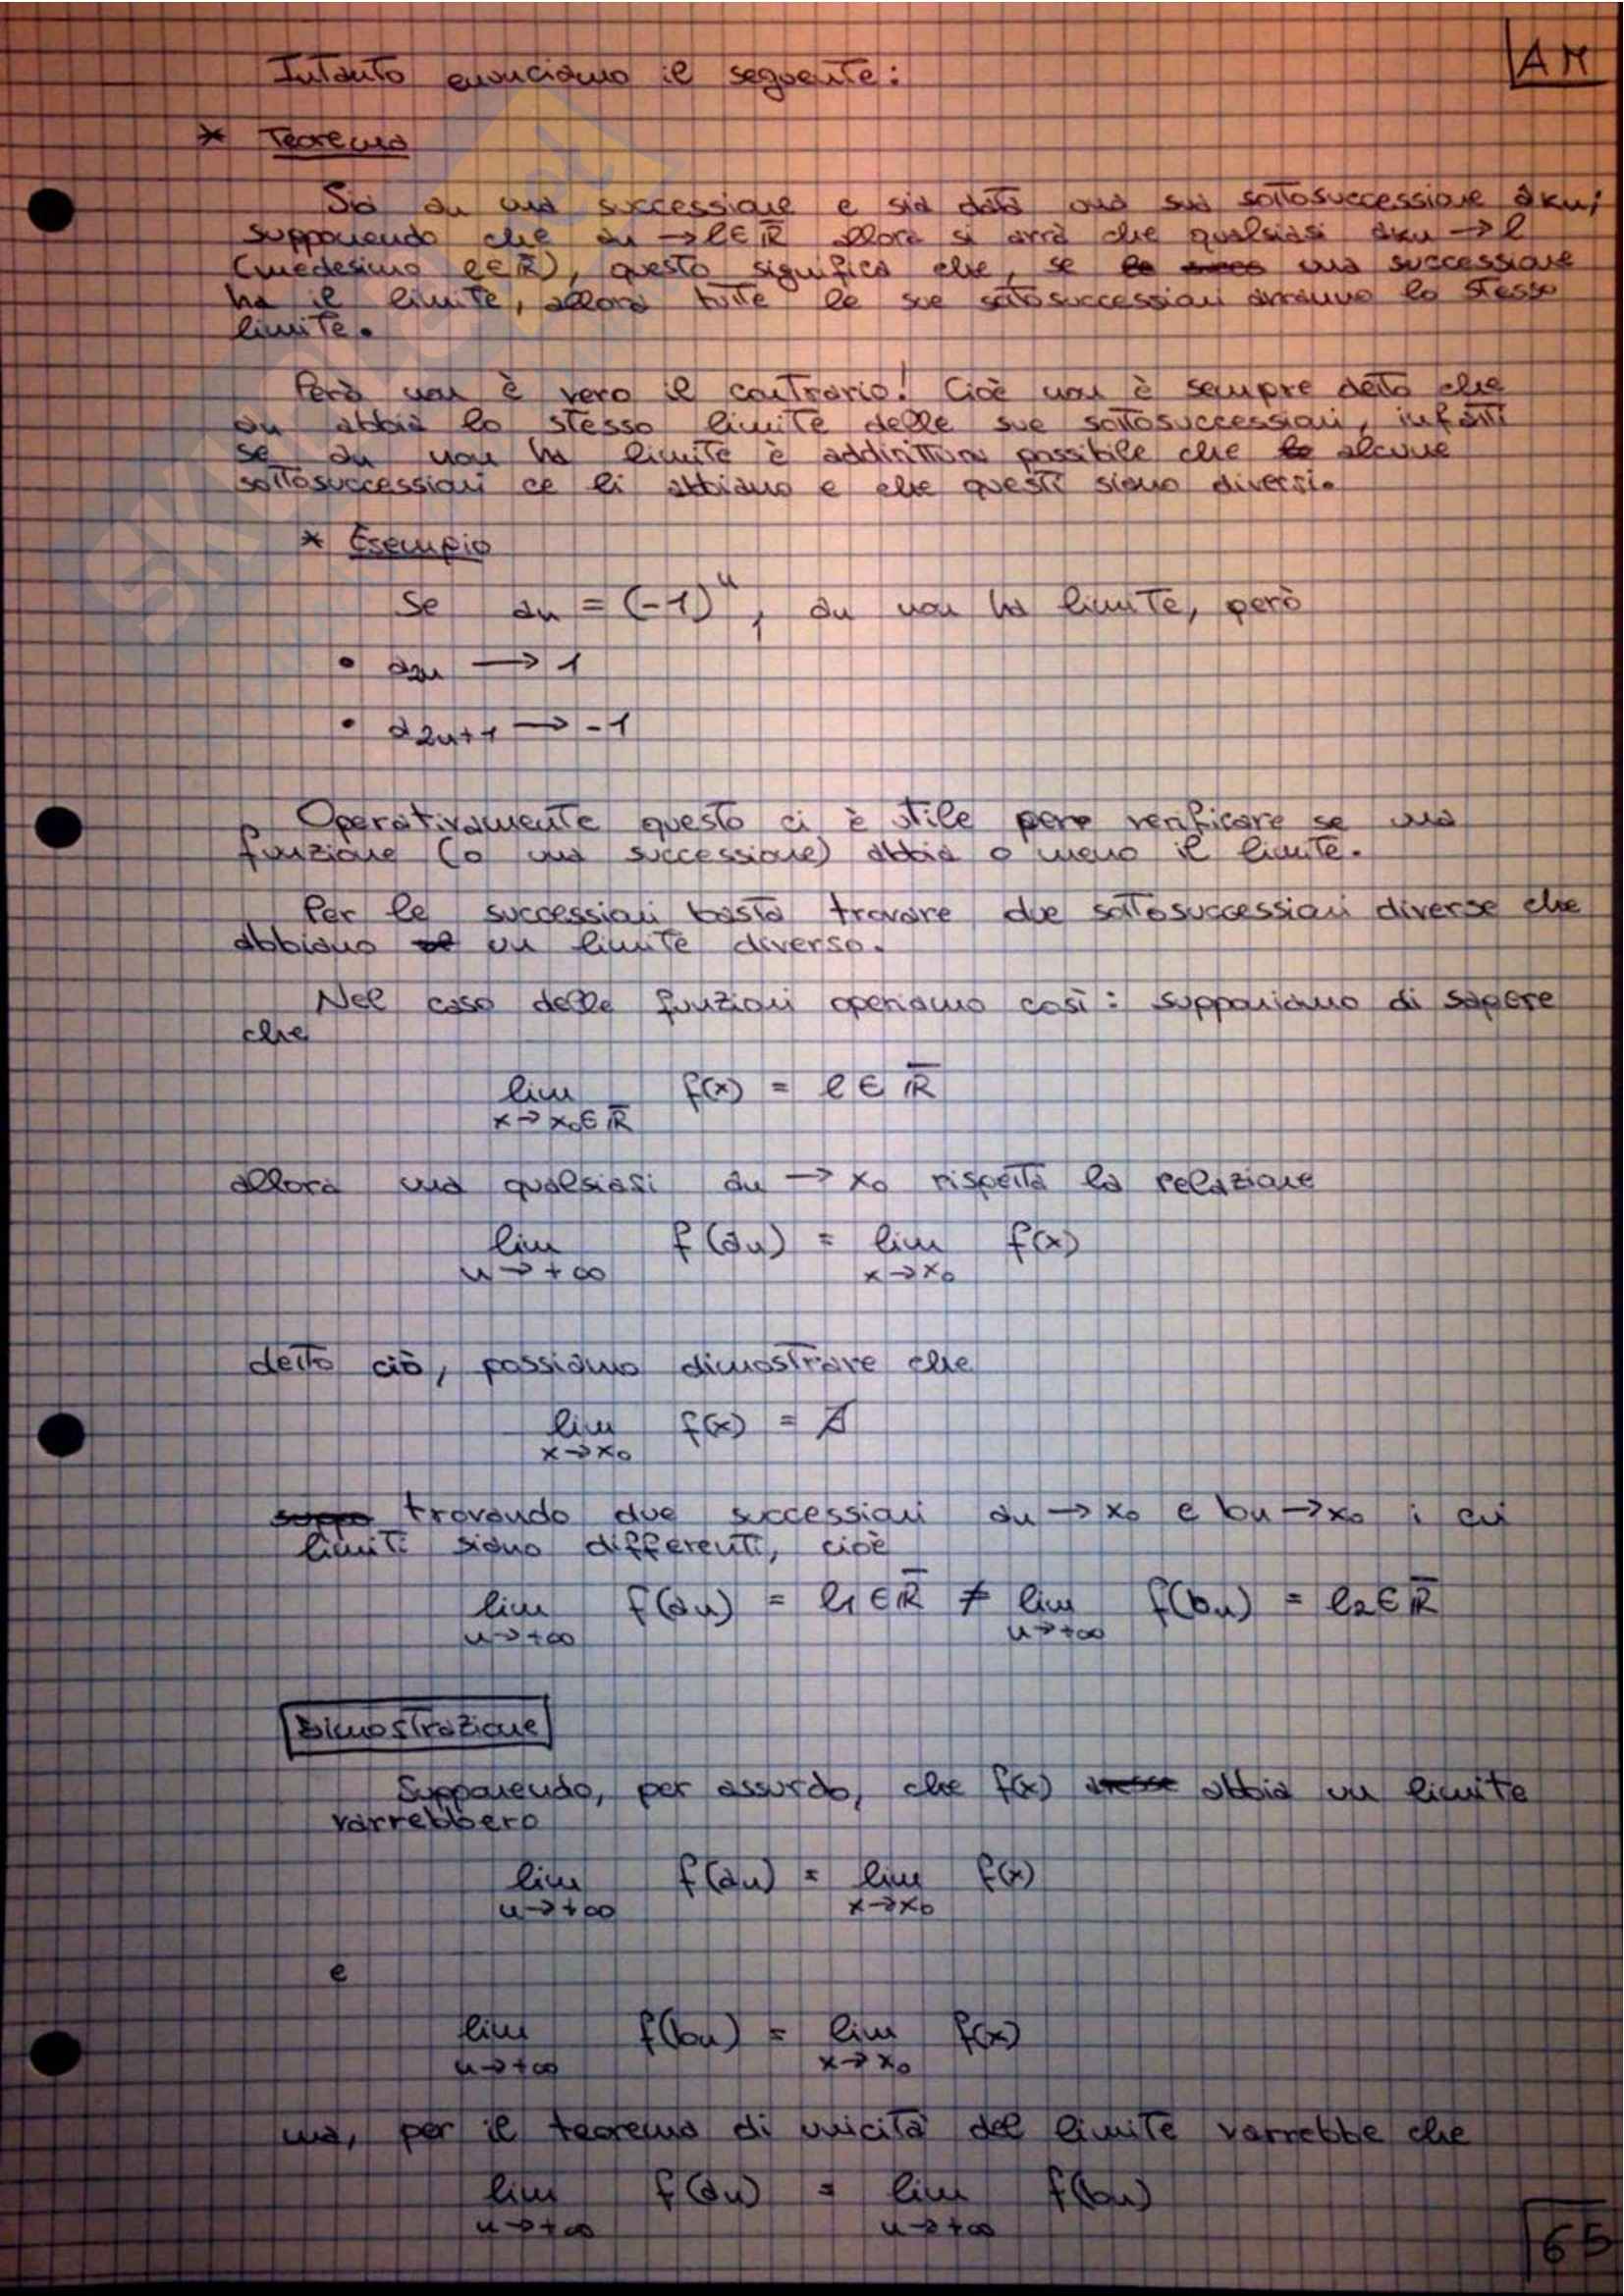 AM
Intanto enunciamo il seguente:
* Teorema
Sia an una successione e sia data una sua sottosuccessione akn;
supponendo che an → l ∈ R̅ allora si avrà che qualsiasi akn → l
(medesimo l ∈ R̅), questo significa che, se una successione
ha il limite, allora tutte le sue sottosuccessioni avranno lo stesso
limite.
Però non è vero il contrario! Cioè non è sempre detto che
an abbia lo stesso limite delle sue sottosuccessioni, infatti
se an non ha limite è addirittura possibile che alcune
sottosuccessioni ce li abbiano e che questi siano diversi.
* Esempio
Se an = (-1)^n, an non ha limite, però
• a2n → 1
• a2n+1 → -1
Operativamente questo ci è utile per verificare se una
funzione (o una successione) abbia o meno il limite.
Per le successioni basta trovare due sottosuccessioni diverse che
abbiano un limite diverso.
Nel caso delle funzioni operiamo così: supponiamo di sapere
che
lim f(x) = l ∈ R̅
x→x0∈R̅
allora una qualsiasi an → x0 rispetta la relazione
lim f(an) = lim f(x)
n→+∞ x→x0
detto ciò, possiamo dimostrare che
lim f(x) = ∄
x→x0
trovando due successioni an→x0 e bn→x0 i cui
limiti siano differenti, cioè
lim f(an) = l1 ∈ R̅ ≠ lim f(bn) = l2 ∈ R̅
n→+∞ n→+∞
Dimostrazione
Supponendo, per assurdo, che f(x) abbia un limite
varrebbero
lim f(an) = lim f(x)
n→+∞ x→x0
e
lim f(bn) = lim f(x)
n→+∞ x→x0
ma, per il teorema di unicità del limite varrebbe che
lim f(an) = lim f(bn)
n→+∞ n→+∞
65